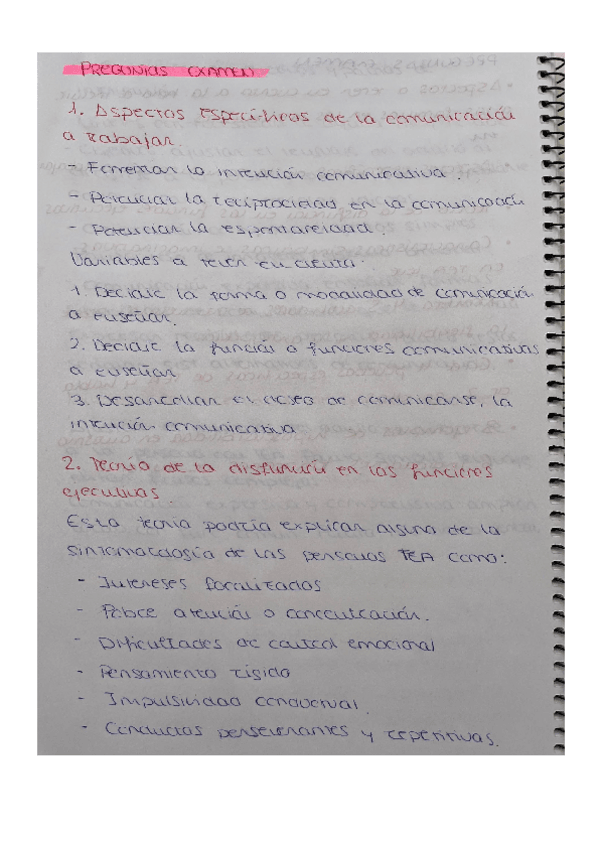 PREGUNTAS EXAMEN
1. Aspectos específicos de la comunicación
a trabajar.
- Fomentar la intención comunicativa.
- Potenciar la reciprocidad en la comunicación
- Potenciar la espontaneidad
Variables a tener en cuenta:
1. Decidir la forma o modalidad de comunicación
a enseñar.
2. Decidir la función o funciones comunicativas
a enseñar
3. Desarrollar el deseo de comunicarse, la
intención comunicativa
2. Teoría de la disfunción en las funciones
ejecutivas.
Esta teoría podría explicar alguna de la
sintomatología de las personas TEA como:
- Intereses focalizados
- Pobre atención o concentración.
- Dificultades de control emocional
- Pensamiento rígido
- Impulsividad conductual.
- Conductas perseverantes y repetitivas.